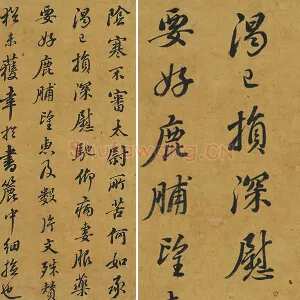 陰寒不審太尉所苦何如承
渴已損深慰馳仰病妻服藥
要好鹿脯望惠及數片文殊贊
猶未獲幸於書簏中細撿也
渴已損深慰
要好鹿脯望